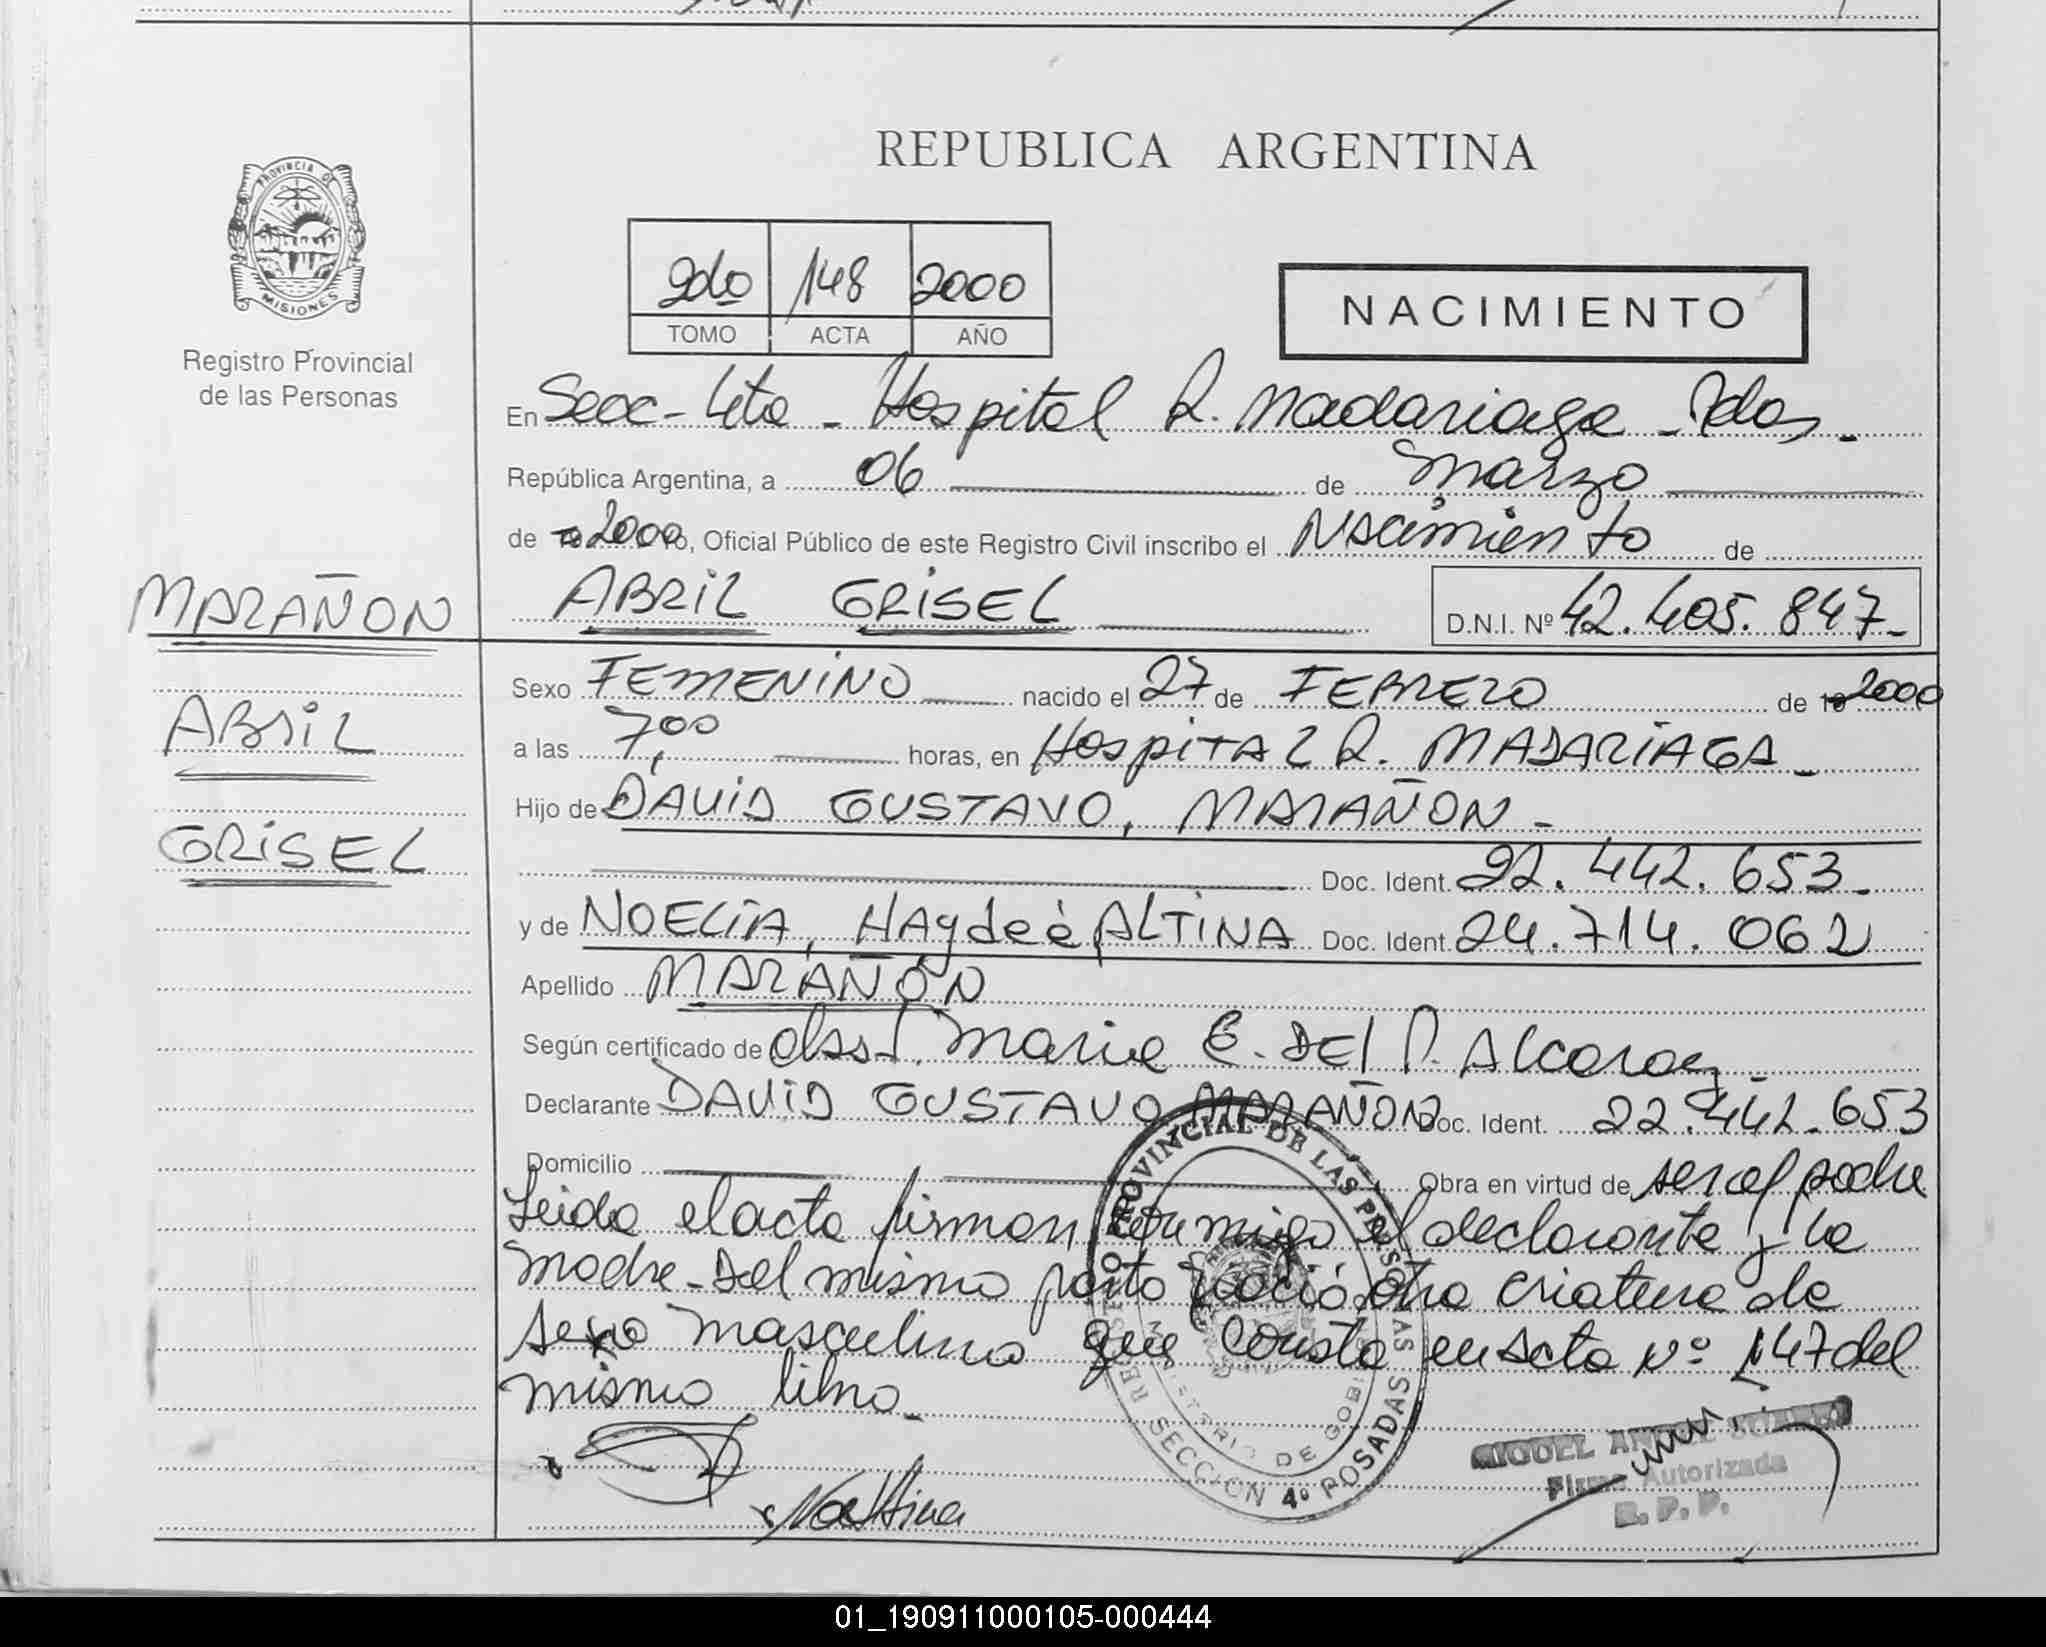 REPUBLICA ARGENTINA
PROVINCIA DE
MISIONES
Registro Provincial
de las Personas
2do 148 2000
TOMO ACTA AÑO
NACIMIENTO
En Secc- 4ta - Hospital R. Madariaga - Pdas. -
República Argentina, a 06 de Marzo
de 2000 yo, Oficial Público de este Registro Civil inscribo el Nacimiento de
MARAÑON
ABRIL GRISEL
D.N.I. Nº 42.405.847-
Sexo FEMENINO nacido el 27 de FEBRERO de 19 2000
ABRIL
a las 7,00 horas, en HOSPITAL R. MADARIAGA -
Hijo de DAVID GUSTAVO, MARAÑON -
GRISEL
Doc. Ident. 22.442.653-
y de NOELIA, HAydeé ALTINA Doc. Ident. 24.714.062
Apellido MARAÑON
Según certificado de obst. Maria E. DEL P. Alcaraz -
Declarante DAVID GUSTAVO MARAÑON Doc. Ident. 22.442.653
Domicilio Obra en virtud de ser el padre
Leida el acta firman conmigo el declarante y la
madre - Del mismo parto nació otra criatura de
sexo masculino que consta en Acta nº 147 del
mismo libro -
REGISTRO PROVINCIAL DE LAS PERSONAS
MINISTERIO DE GOBI
SECCION 4º POSADAS
NAltina
MIGUEL ANGEL
Firma Autorizada
R. P. P.
01_190911000105-000444